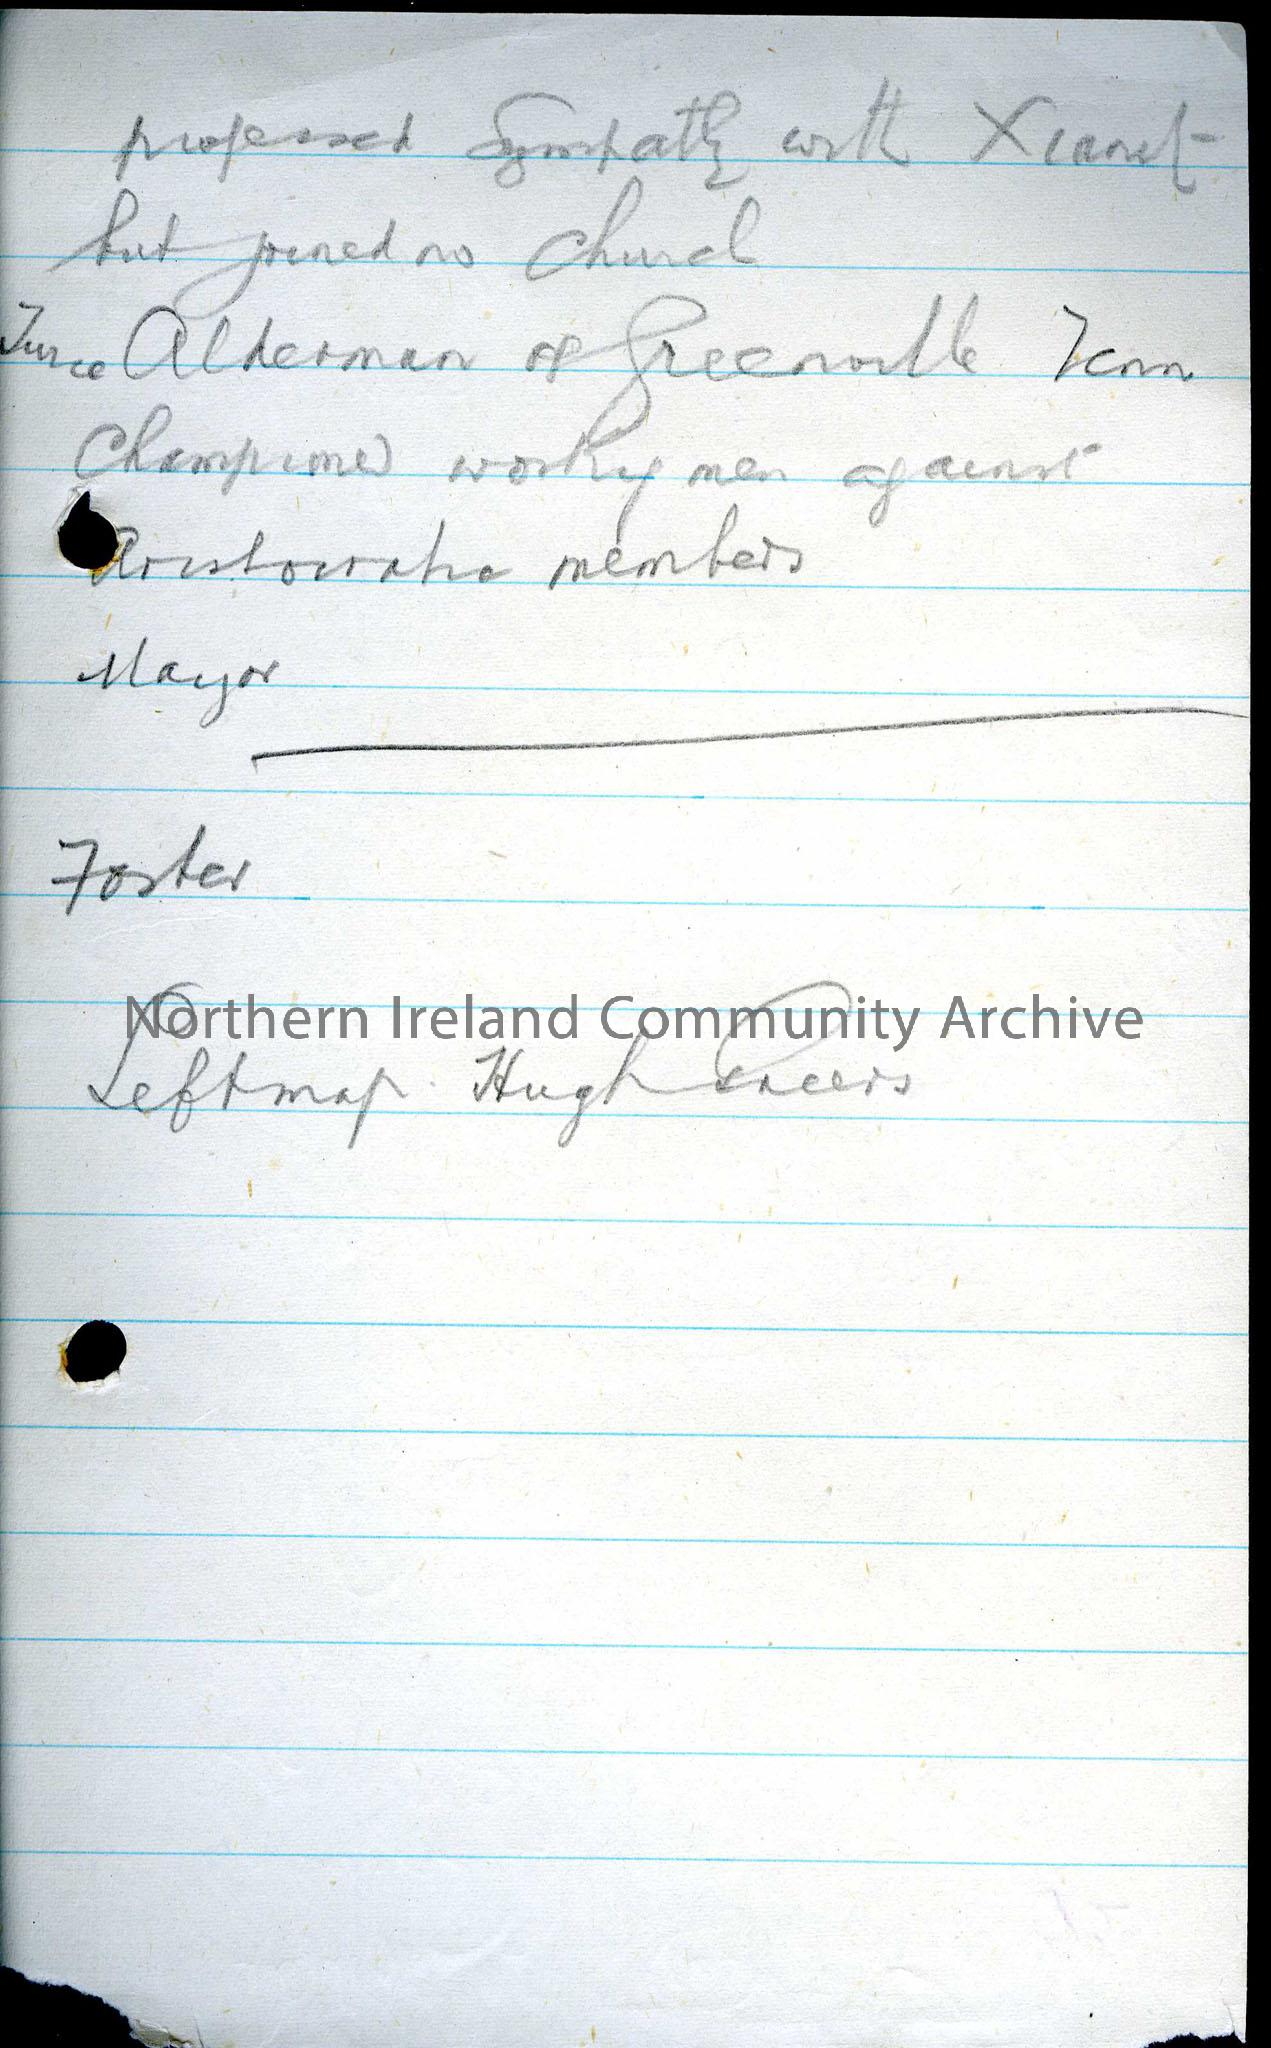 professed sympathy with Xianity
but joined no church
Twice Alderman of Greenville Tenn
Championed working men against
Aristocratic members
Mayor
Foster
Northern Ireland Community Archive
Left map. Hugh